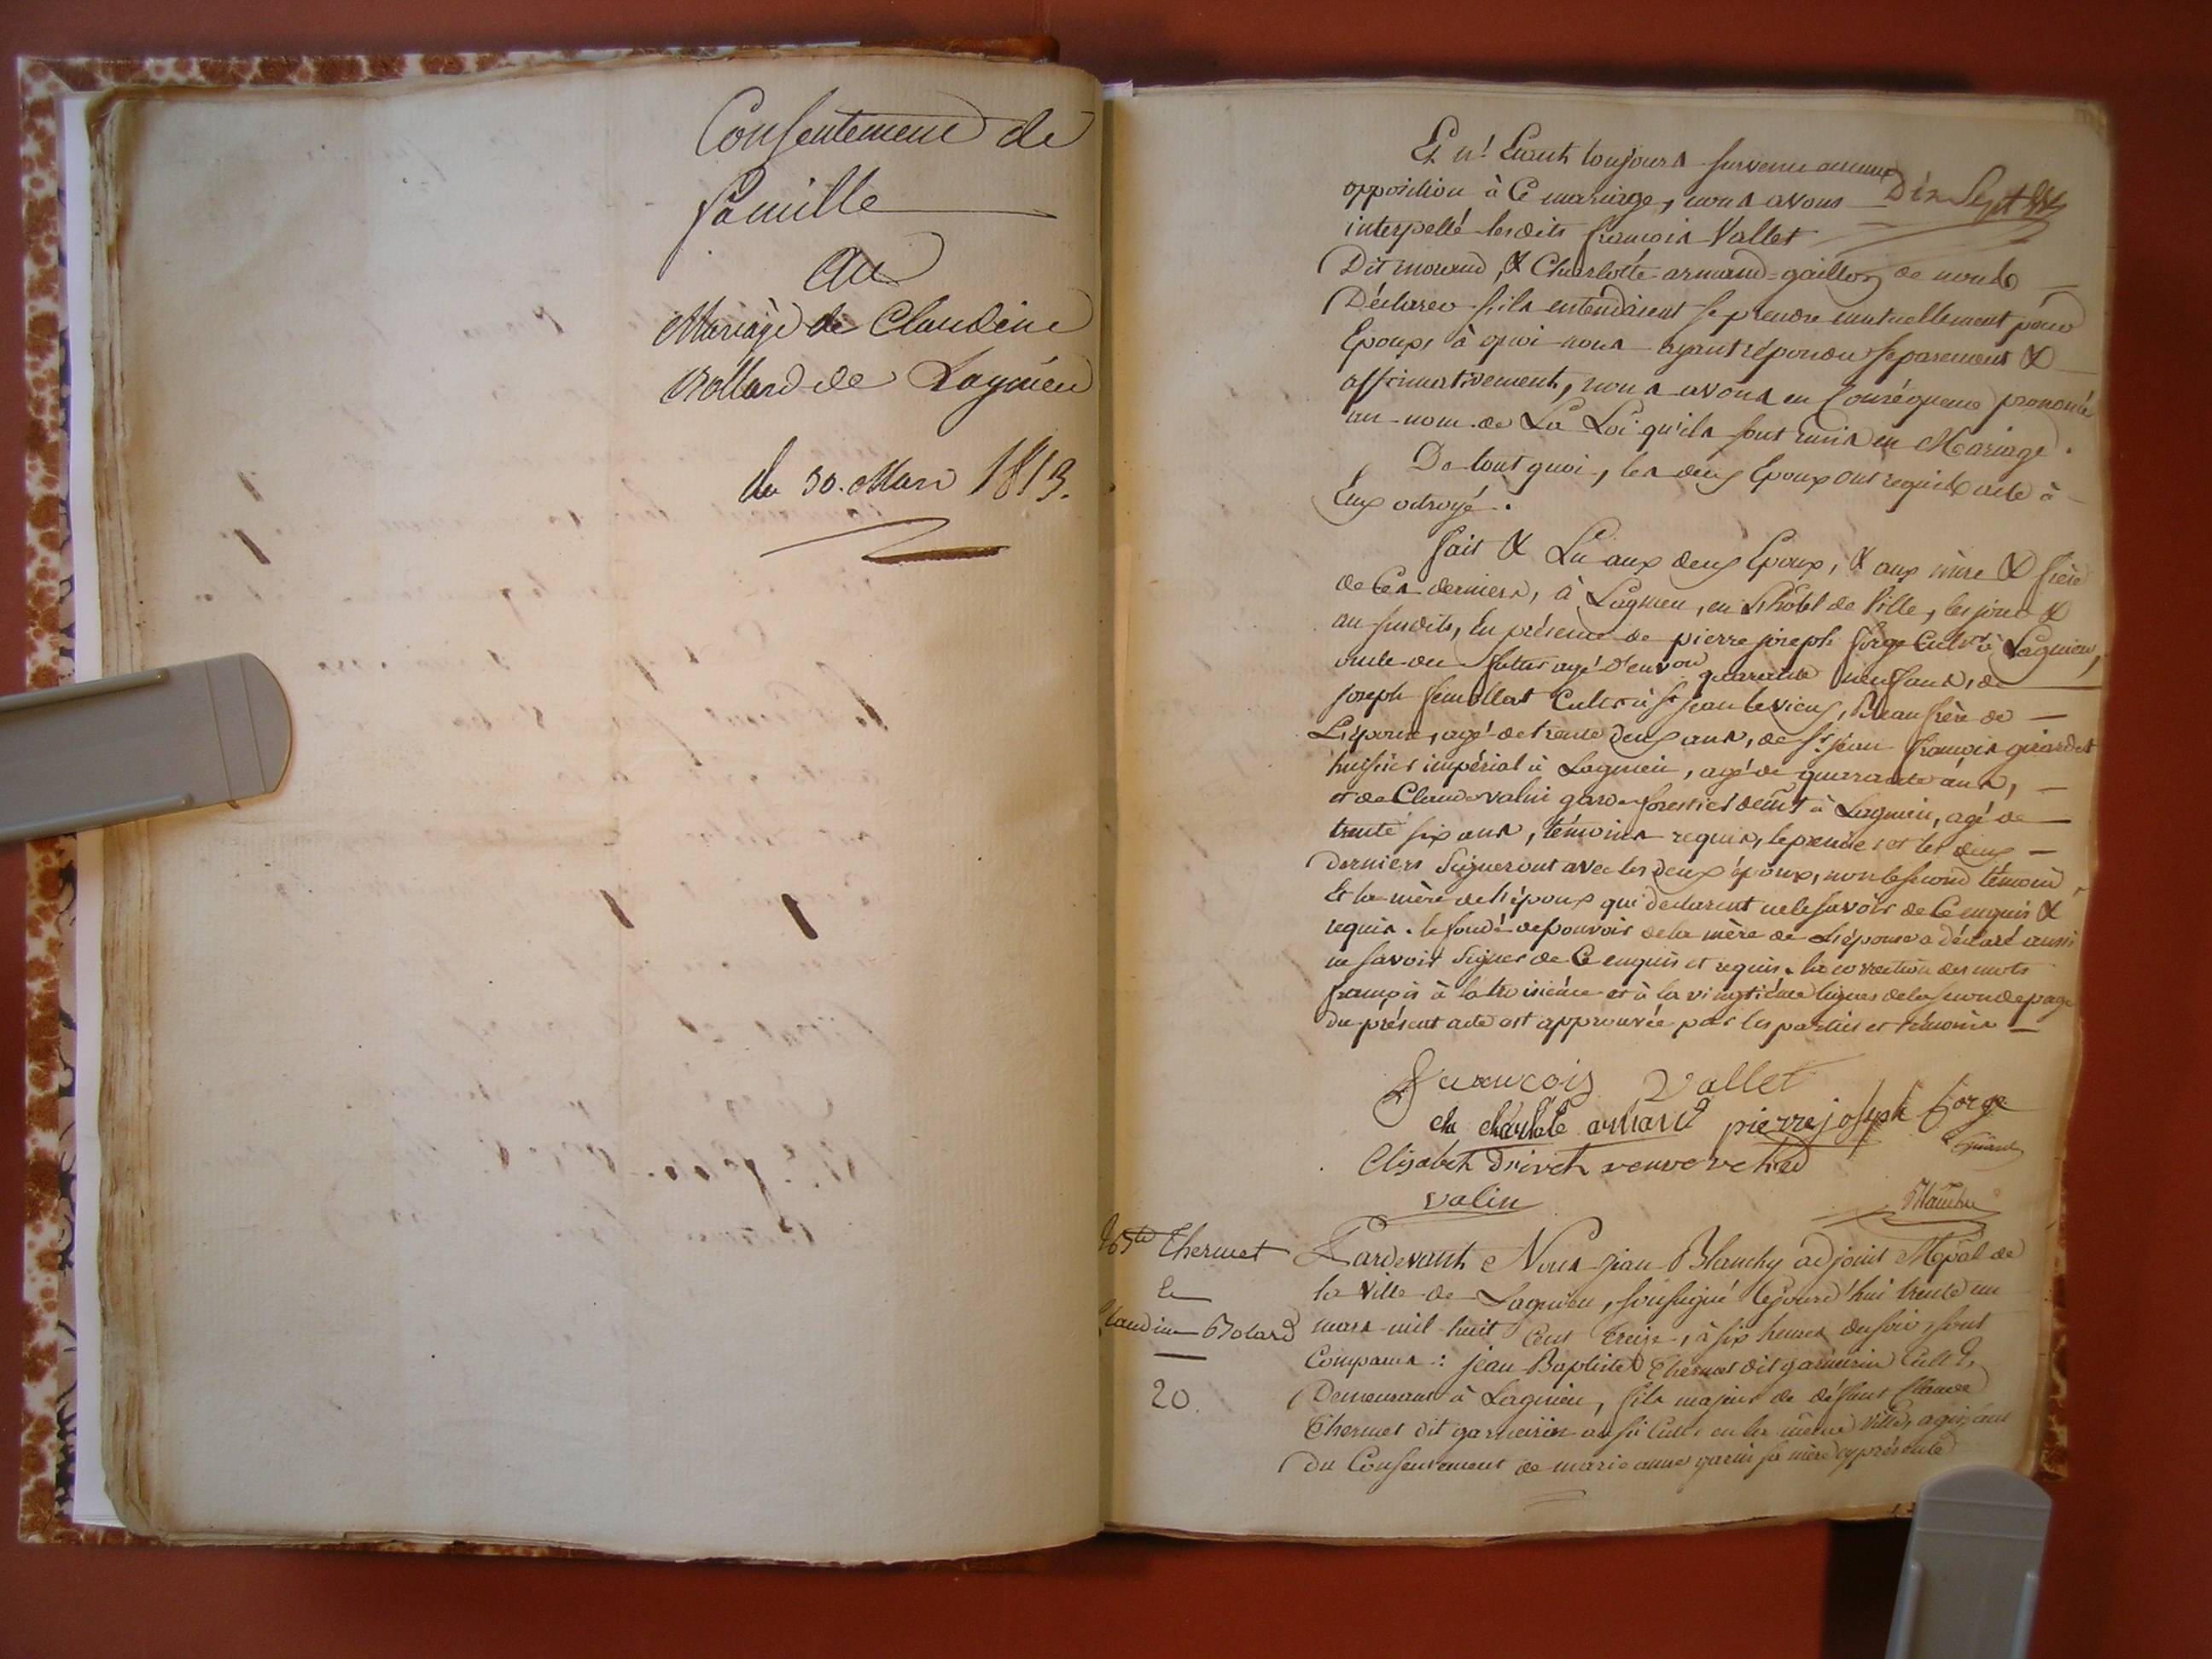 Consentement de
famille
au
Mariage de Claudine
Bollard de Lagnieu
du 30. Mars 1813.
Et n'Etant toujours survenu aucune
Dix Sept
opposition à Ce mariage, nous avons
interpellé lesdits françois Vallet
Dit morand, & Charlotte armand-gaillon de nous
Déclarer s'ils entendaient se prendre mutuellement pour
Epoux, à quoi nous ayant répondu séparement &
affirmativement, nous avons en Conséquence prononcé
au nom de La Loi qu'ils sont unis en Mariage.
De tout quoi, les deux Epoux ont requis acte à
Eux octroyé.
fait & Lu aux deux Epoux, & aux mère & frère
de Ces derniers, à Lagnieu, en L'hôtel de Ville, les jour &
an susdits, En présence de pierre joseph forge Cultr à Lagnieu,
oncle du futur agé d'envon quarante neuf ans, de
joseph Cultr à St jean le vieux, Beaufrère de
L'épouse, agé de trente deux ans, de Sr jean françois girardet
huissier impérial à Lagnieu, agé de quarante ans,
et de Claude valin garde forestier demt à Lagnieu, agé de
trente six ans, témoins requis, le premier et les deux
Derniers Signeront avec les deux époux, non le second témoin,
Et la mère de l'époux qui déclarent ne le savoir de Ce enquis &
requis. le fondé de pouvoir de la mère de L'épouse a déclaré aussi
ne savoir Signer de Ce enquis et requis. la correction des mots
françois à la troisième et à la vingtième lignes de la seconde page
du présent acte est approuvée par les parties et témoins
françois Vallet
charlote armand pierre joseph forge
Elisabeth drivet veuve
valin
Blanchy
Bte Thermet
&
Claudine Bolard
20.
Pardevant Nous jean Blanchy adjoint Mpal de
la Ville de Lagnieu, soussigné Cejourd'hui trente un
mars mil huit Cent treize, à six heures du soir, sont
Comparus : jean Baptiste Thermet dit garneirin Cultr,
Demeurant à Lagnieu, fils majeur de défunt Claude
Thermet dit garneirin aussi Cultr en la même Ville, agissant
du Consentement de marie anne garin sa mère cy présente